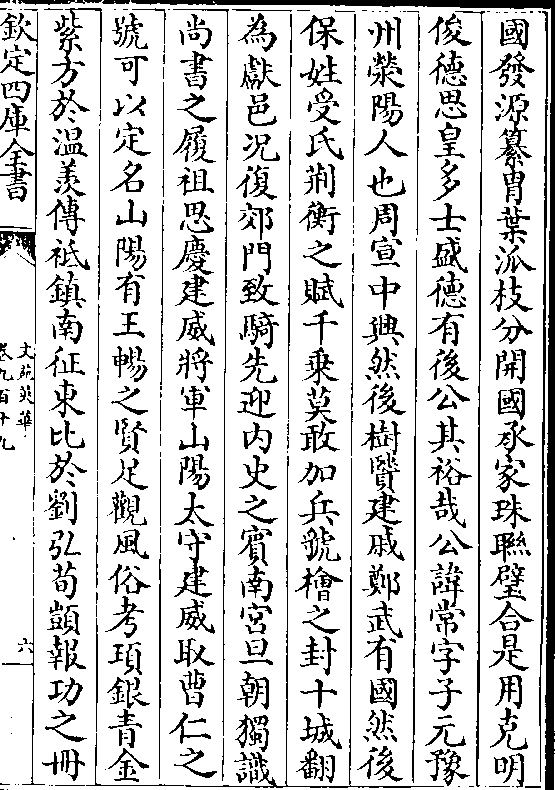 國發源纂胄葉㳒枝分開國承家珠聯璧合是用克明
俊德思皇多士盛德有後公其裕哉公諱常字子元豫
州滎陽人也周宣中興然後樹賢建戚鄭武有國然後
保姓受氏荆衡之賦千乗莫敢加兵號檜之封十城翻
為獻邑况復郊門致騎先迎内史之賔南宫旦朝獨識
尚書之履祖思慶建威將軍山陽太守建威取曹仁之
號可以定名山陽有王暢之賢足觀風俗考項銀青金
紫方於溫羡傅祗鎮南征東比於劉弘荀顗報功之冊
欽定四庫全書
文苑英華
卷九百十九
六